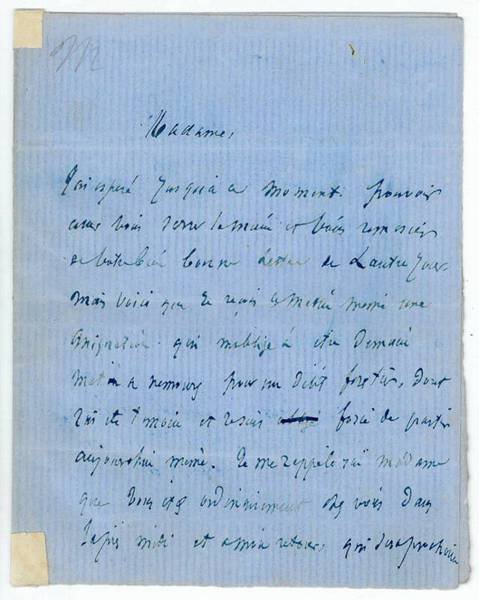 Madame,
J'ai espéré jusqu'à ce moment pouvoir
vous serrer la main et vous remercier
de votre bien bonne lettre de l'autre jour
mais voici que je reçois ce matin même une
assignation qui m'oblige à être demain
matin à nemours pour un délit forestier, dont
j'ai été témoin et je suis forcé de partir
aujourd'hui même. Je me rappelerai madame
que vous êtes ordinairement chez vous dans
l'après midi et à mon retour, qui sera prochain